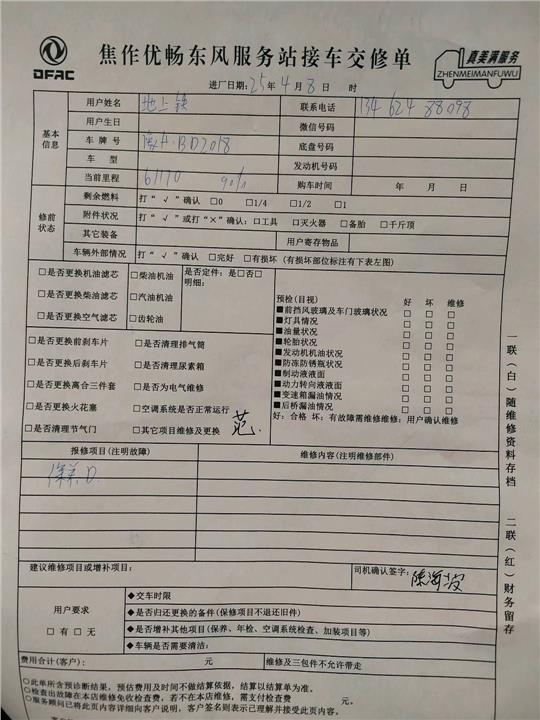 DFAC
焦作优畅东风服务站接车交修单
真美满服务
ZHENMEIMANFUWU
进厂日期：25年4月8日 时
基本信息
用户姓名
联系电话 134 624 88098
用户生日
微信号码
车牌号
底盘号码
车型
发动机号码
当前里程 61110 90%
购车时间 年 月 日
修前状态
剩余燃料 打“√”确认 □0 □1/4 □1/2 □1
附件状况 打“√”或打“×”确认：□工具 □灭火器 □备胎 □千斤顶
其它装备
用户寄存物品
车辆外部情况 打“√”确认 □完好 □有损坏（有损坏部位标注有下表左图）
□是否更换机油滤芯 □柴油机油 是否定件：是□否□
明细：
□是否更换柴油滤芯 □汽油机油
□是否更换空气滤芯 □齿轮油
预检(目视) 好 坏 维修
■前挡风玻璃及车门玻璃状况 □ □ □
■灯具情况 □ □ □
■油量状况 □ □ □
■轮胎状况 □ □ □
■发动机机油状况 □ □ □
■防冻防锈瓶状况 □ □ □
■制动液液面 □ □ □
■动力转向液液面 □ □ □
■变速箱漏油情况 □ □ □
■后桥漏油情况 □ □ □
好：合格 坏：有故障需维修维修：用户确认维修
□是否更换前刹车片 □是否清理排气筒
□是否更换后刹车片 □是否清理尿素箱
□是否更换离合三件套 □是否为电气维修
□是否更换火花塞 □空调系统是否正常运行
□是否清理节气门 □其它项目维修及更换
报修项目(注明故障)
维修内容(注明维修部件)
保养.D
建议维修项目或增补项目：
司机确认签字：陈海波
用户要求
□有 □无
◆交车时限
◆是否归还更换的备件(保修项目不退还旧件)
◆是否增补其他项目(保养、年检、空调系统检查、加装项目等)
◆车辆是否需要清洁：
费用合计(客户)： 元
维修及三包件不允许带走
○此单所含预诊断结果，预估费用及时间不做结算依据，结算以结算单为准。
○检查出故障在本店维修免收检查费，若不在本店维修，需支付检查费 元。
○服务顾问已将此页内容详细向客户说明，客户签名则表示已理解并接受此页内容。
一联（白）随维修资料存档
二联（红）财务留存